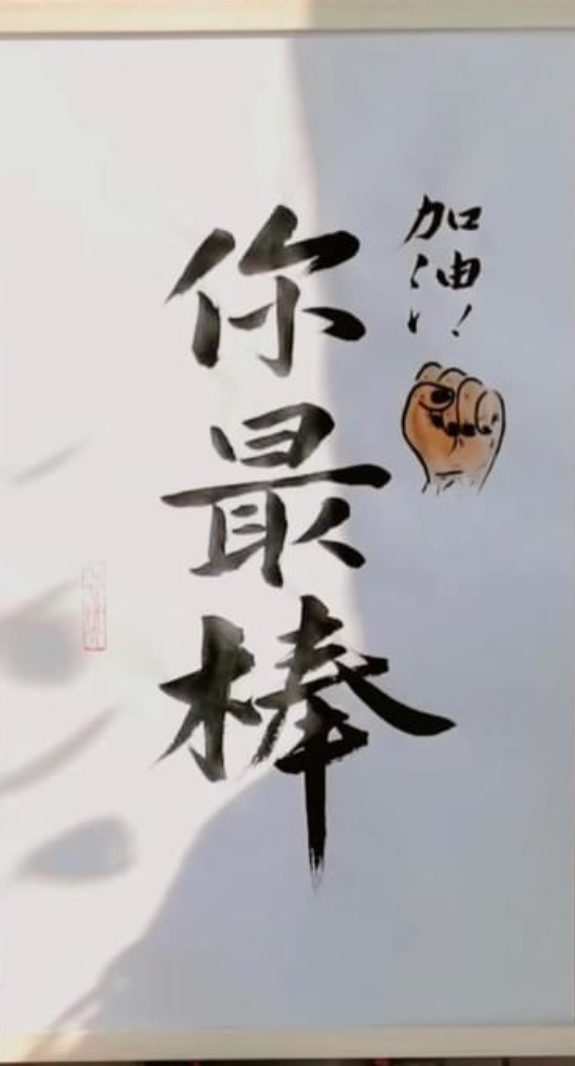 加油!!
你最棒